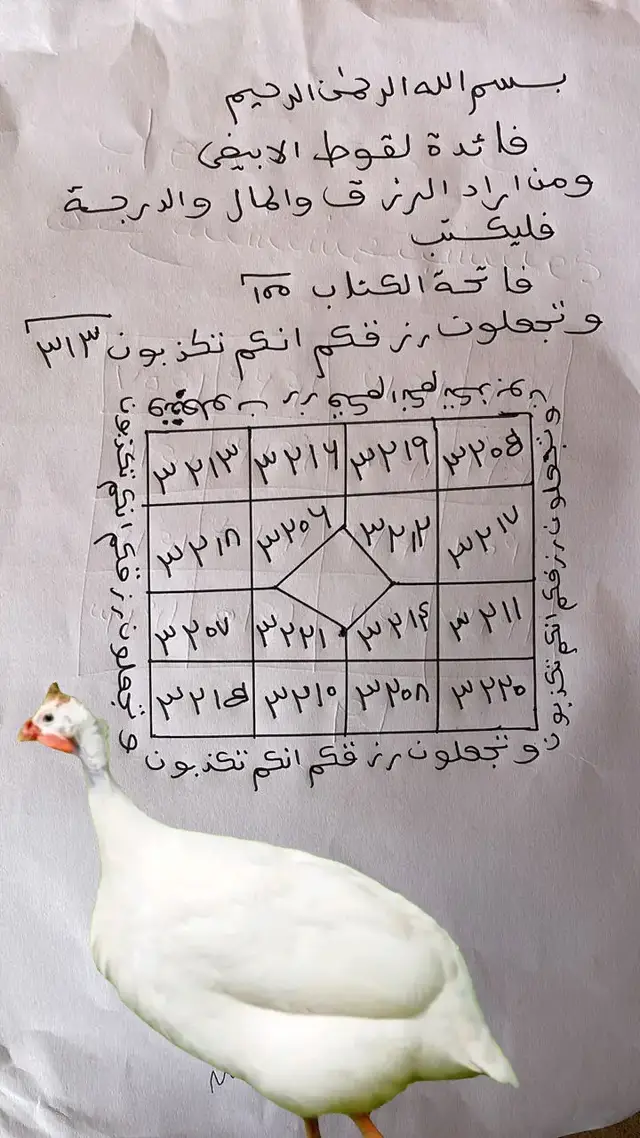 بسم الله الرحمن الرحيم
فائدة لقوط الابيض
ومن اراد الرزق والمال والدرجة
فليكتب
فاتحة الكتاب ١٠٠
وتجعلون رزقكم انكم تكذبون ٣١٣
وتجعلون رزقكم انكم تكذبون
٣٢٠٥ ٣٢١٩ ٣٢١٦ ٣٢١٣
٣٢١٧ ٣٢١٢ ٣٢٠٦ ٣٢١٨
٣٢١١ ٣٢١٤ ٣٢٢١ ٣٢٠٧
٣٢٢٠ ٣٢٠٨ ٣٢١٠ ٣٢١٥
وتجعلون رزقكم انكم تكذبون
وتجعلون رزقكم انكم تكذبون